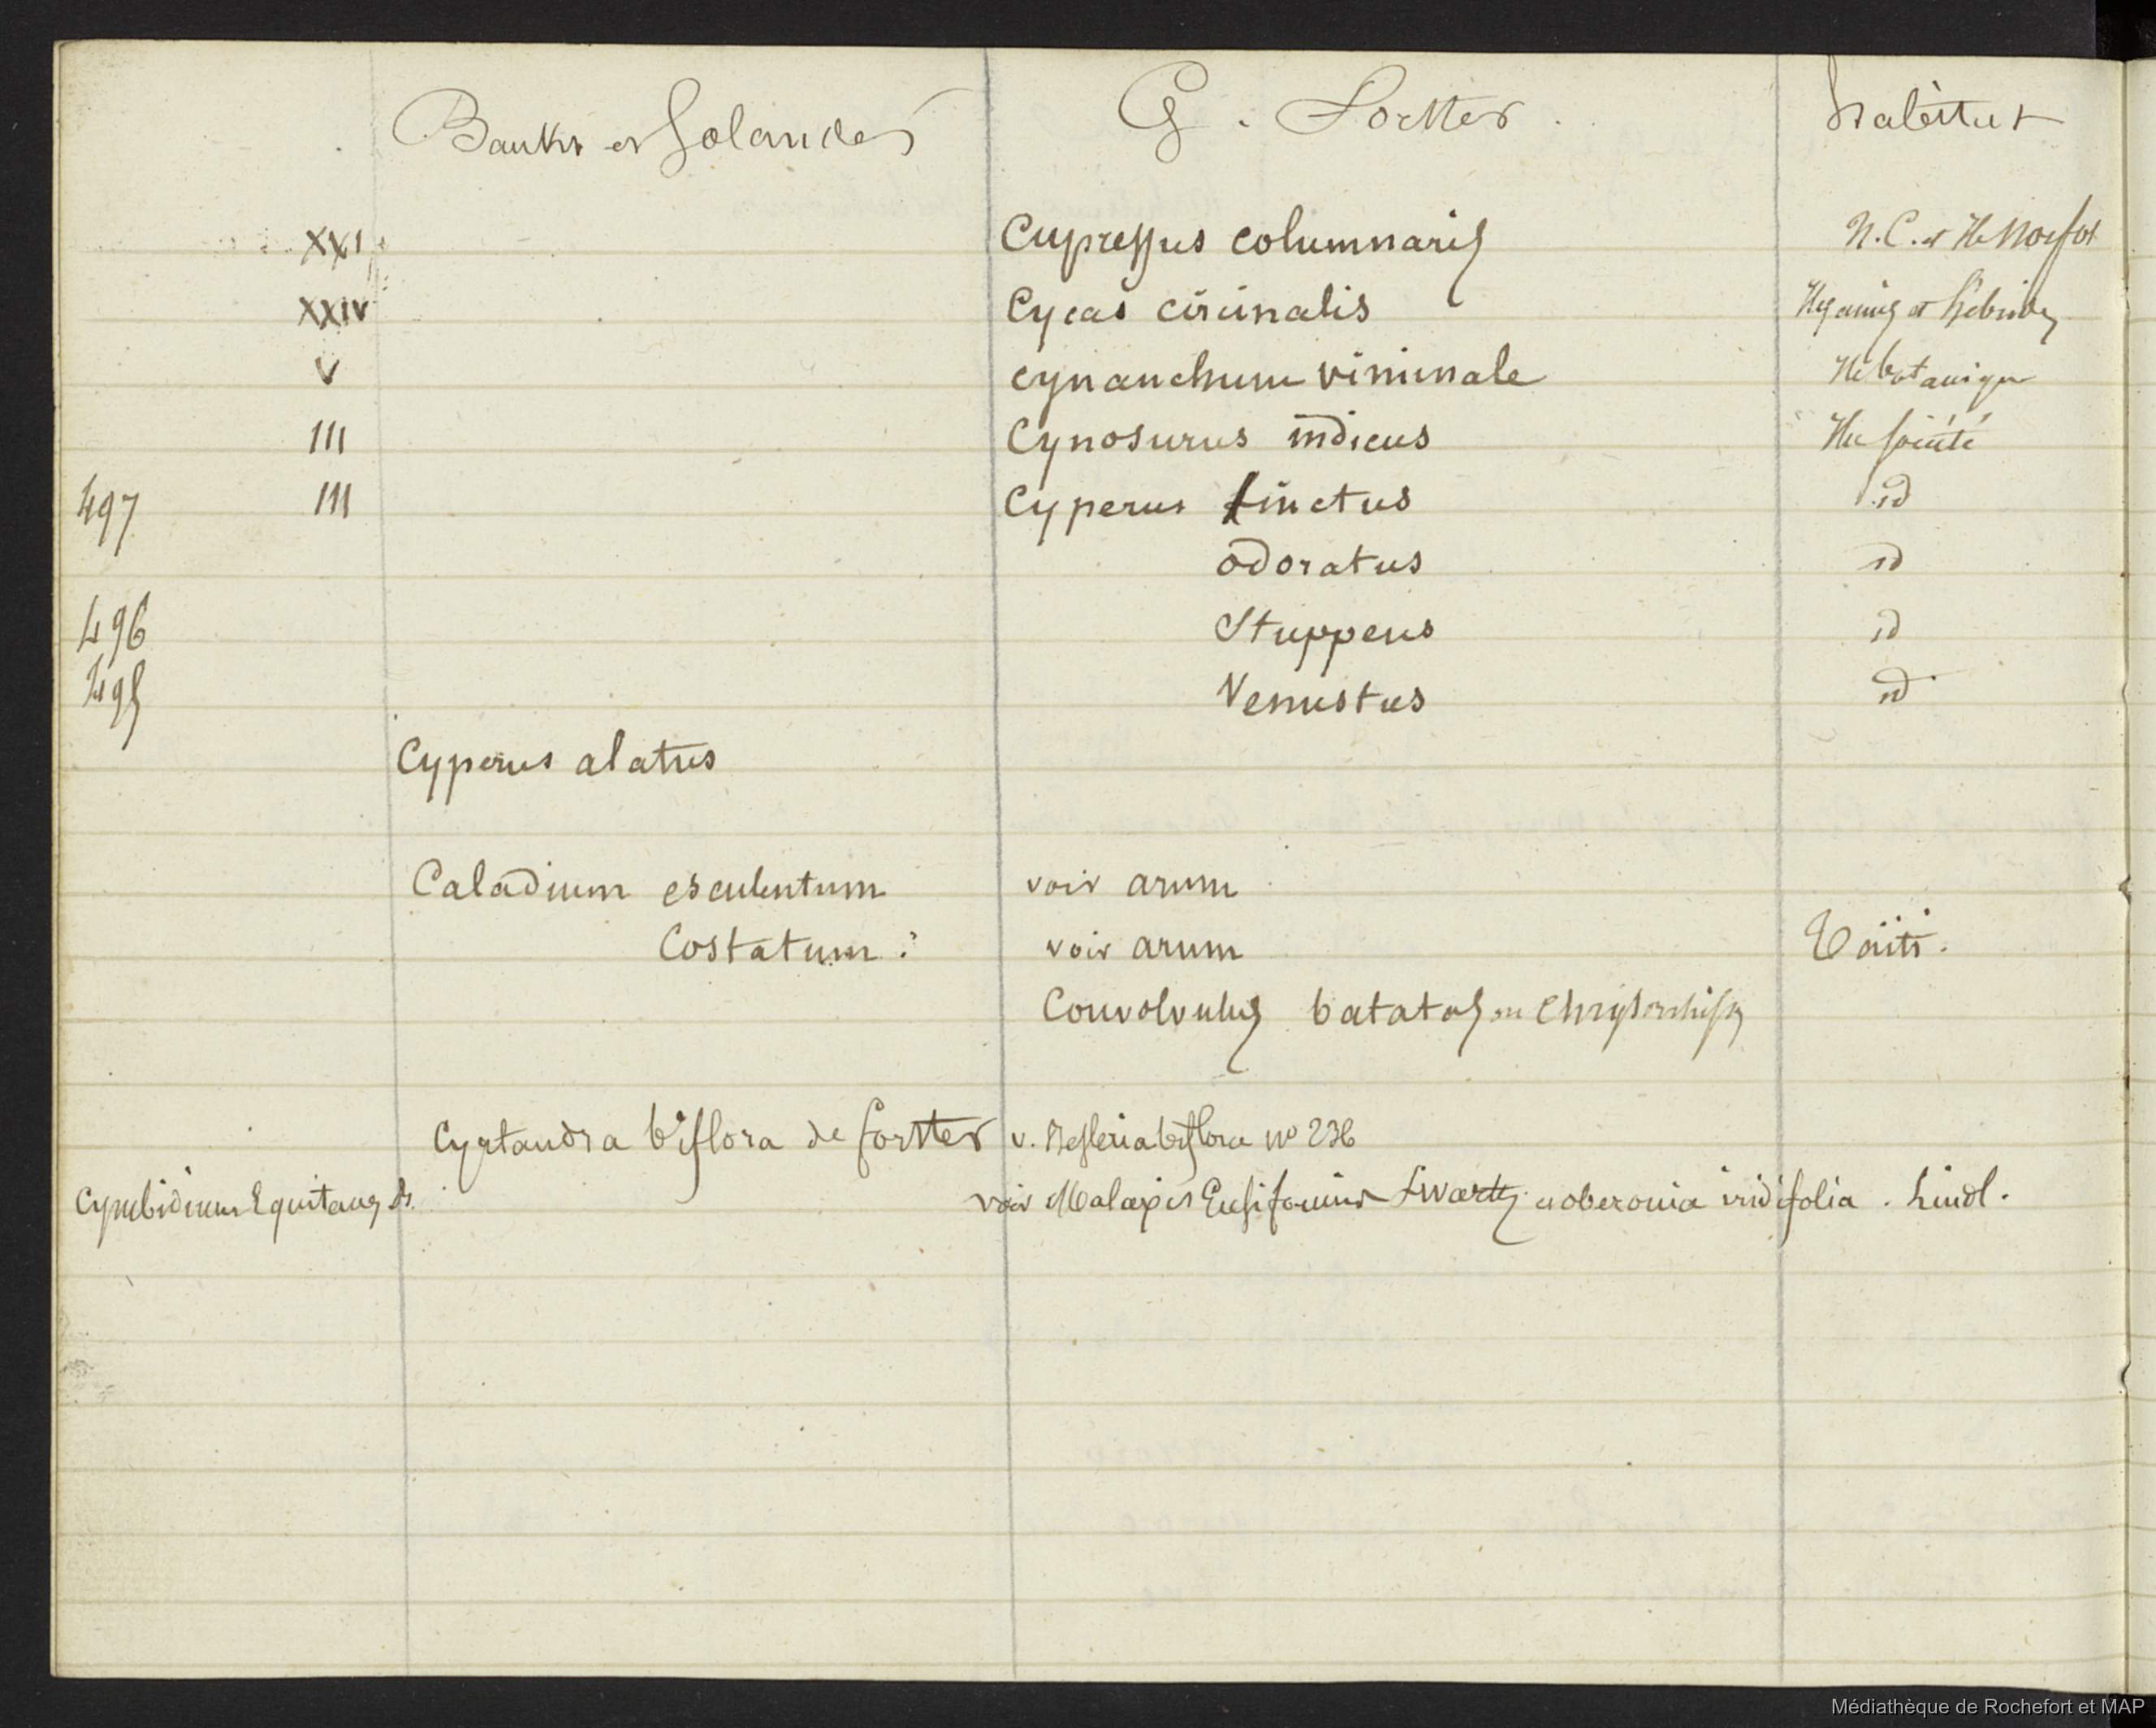 Banks et Solander G. Forster habitat
XXI Cupressus columnaris N.C. et Ile Norfol
XXIV Cycas circinalis Iles amis et hébrides
V cynanchum viminale Ile botanique
III Cynosurus indicus Ile société
497 III Cyperus tinctus id
odoratus id
496 Stuppeus id
495 Venustus id
Cyperus alatus
Caladium esculentum voir arum
Costatum ? voir arum Taïti.
Convolvulus batatas ou Chrysorhisus
Cyrtandra biflora de forster v. Besleria biflora no 236
Cymbidium Equitans voir Malaxis Ensiformis Swartz et oberonia iridifolia . Lindl.
Médiathèque de Rochefort et MAP